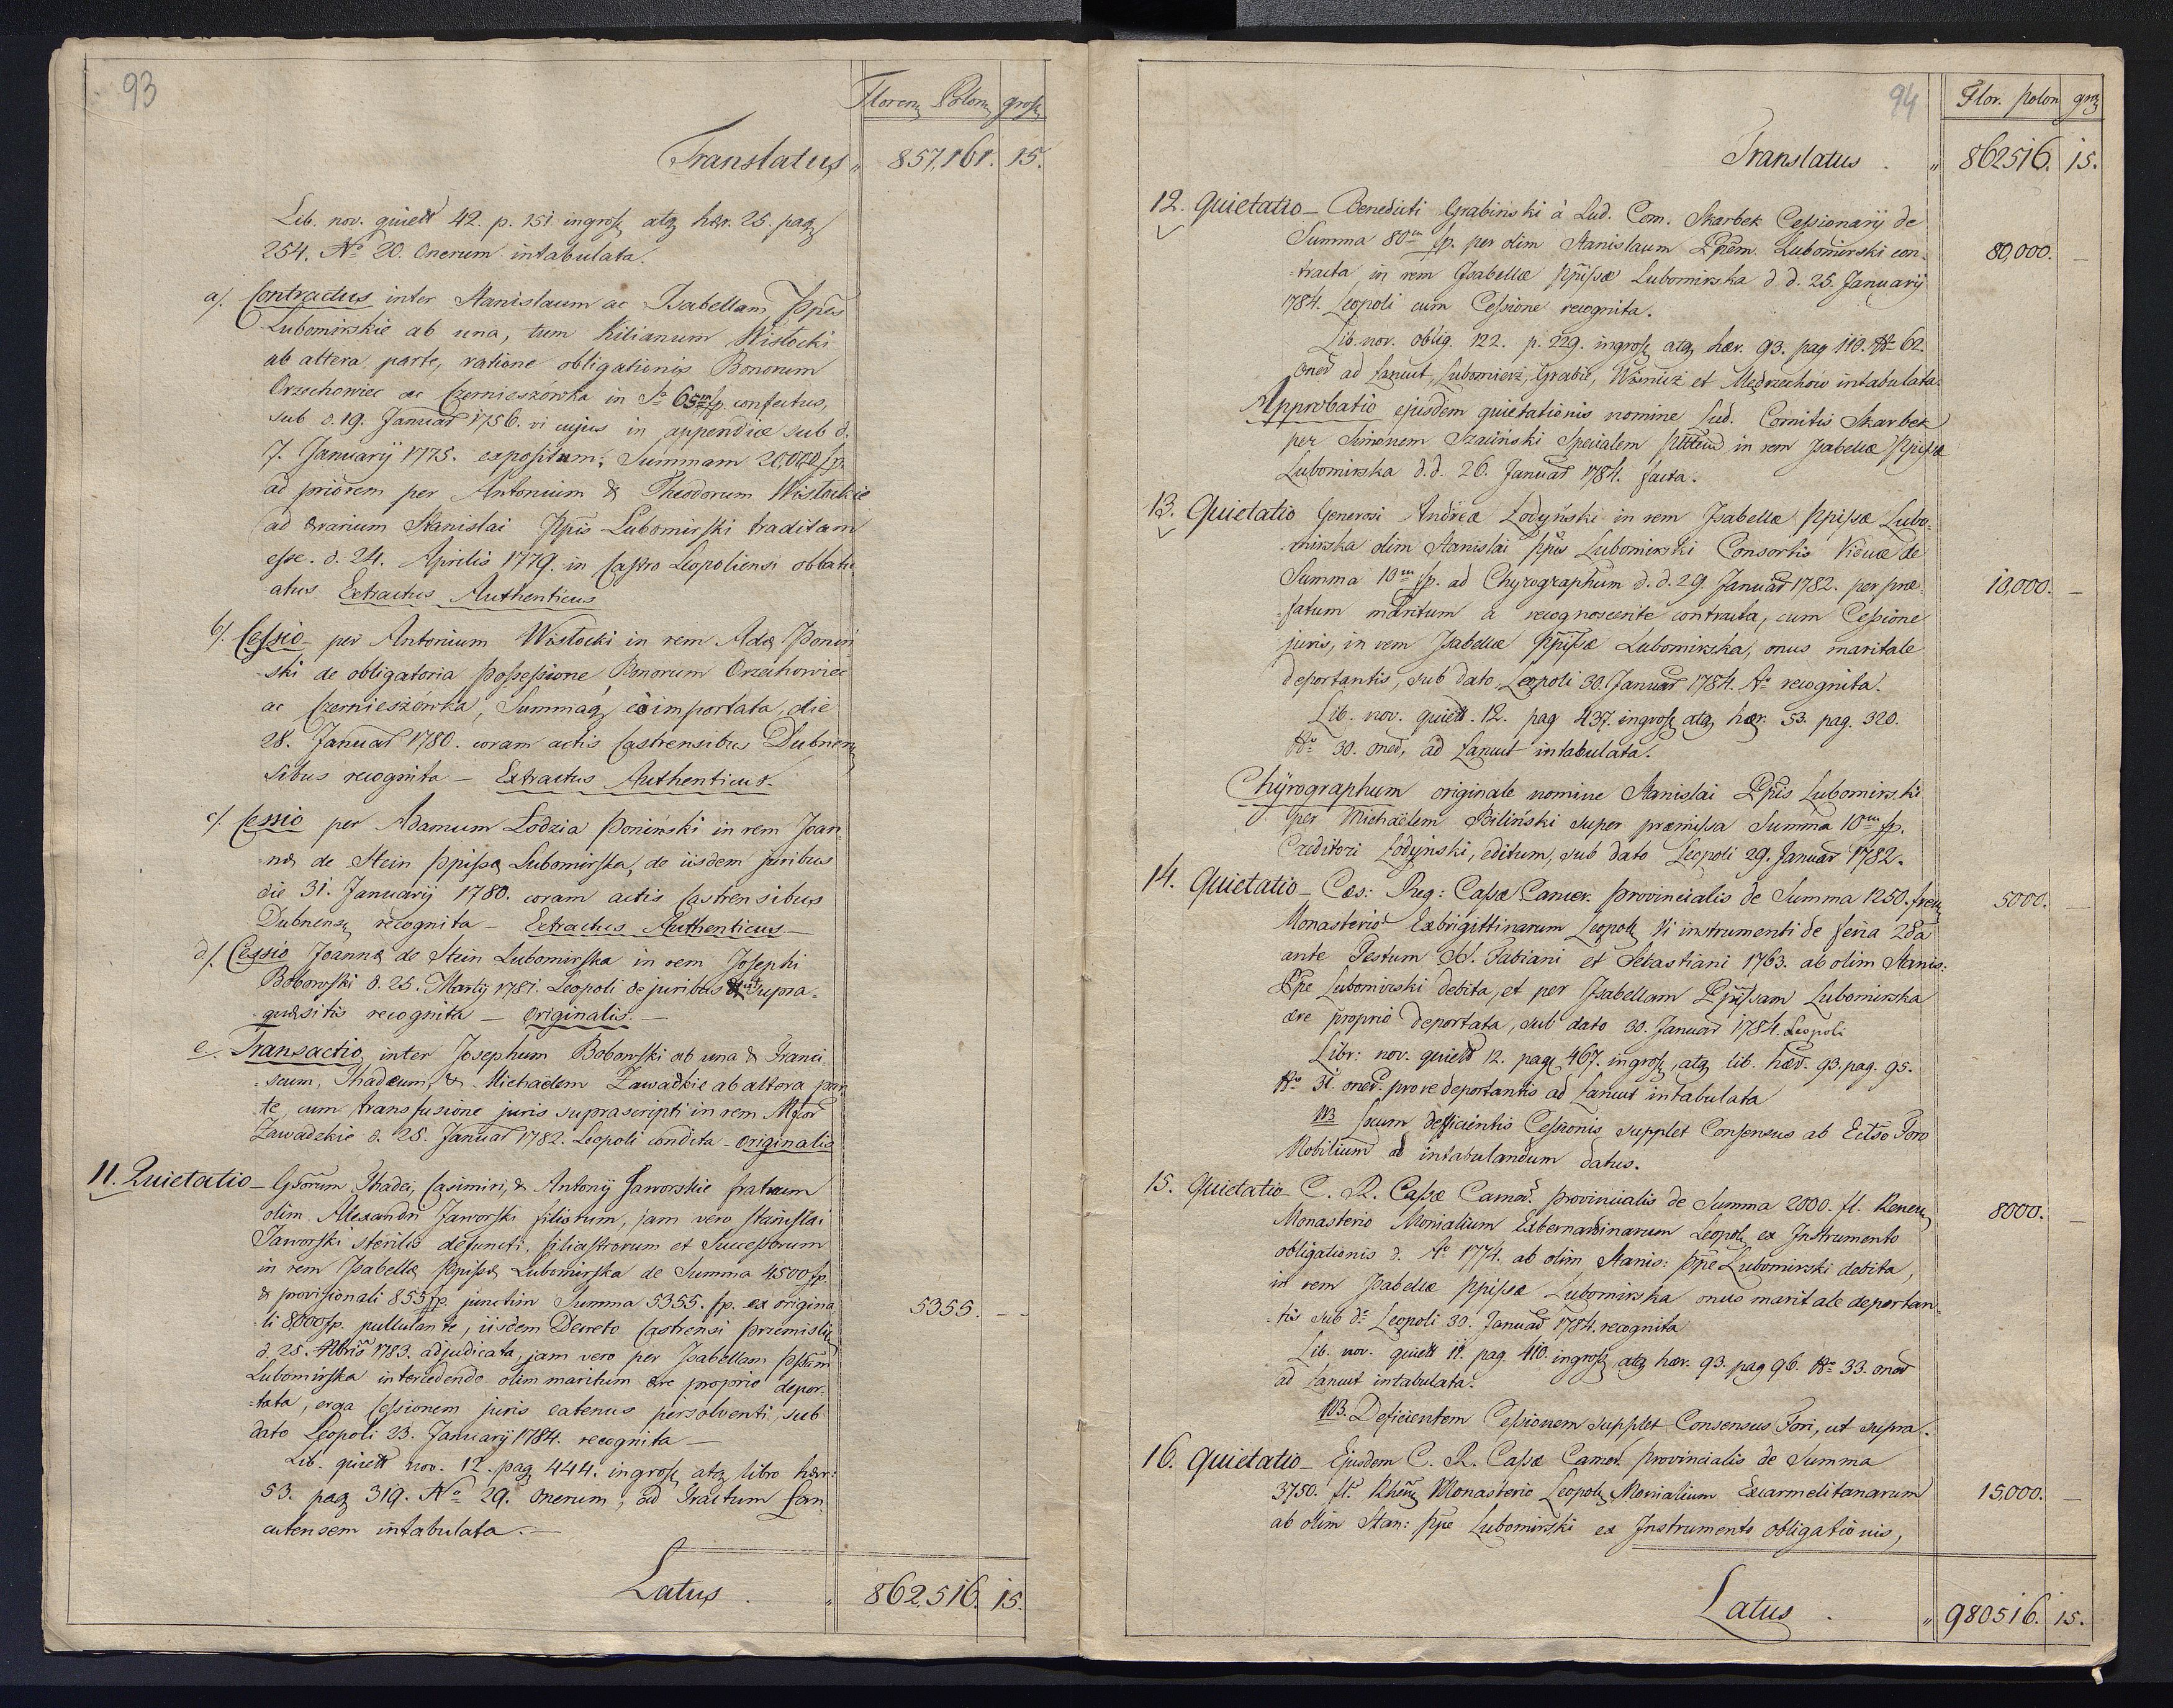 93
Floren Polon gross
Translatus " 857,161. 15.
Lib. nov. quiett 42. p. 151 ingross atq hær. 25. pag
254. No 20. Onerum intabulata.
a/. Contractus inter Stanislaum ac Isabellam Ppes
Lubomirskie ab una, tum Kilianum Wisłocki
ab altera parte, ratione obligationis Bonorum
Orzechowiec ac Czernieszówka in So 65m fp. confectus,
sub d. 19. Januar 1756. vi cujus in appendice sub d.
7. Januarÿ 1775. expositam, Summam 20,000 fp.
ad priorem per Antonium & Theodorum Wisłockie
ad ærarium Stanislai Ppis Lubomirski traditam
esse. d. 24. Aprilis 1779. in Castro Leopoliensi oblati-
atus Extractus Authenticus
b/. Cessio per Antonium Wisłocki in rem Adæ Ponin-
ski de obligatoria possessione Bonorum Orzechowiec
ac Czernieszówka, Summaq eo importata, die
28. Januar 1780. coram actis Castrensibus Dubnen
sibus recognita – Extractus Authenticus.
c/. Cessio per Adamum Lodzia Poninski in rem Joan-
næ de Stein Ppissæ Lubomirska, de iisdem juribus
die 31. Januarÿ 1780. coram actis Castrensibus
Dubnens recognita – Extractus Authenticus –
d/. Cessio Joannæ de Stein Lubomirska in rem Josephi
Bobowski d. 25. Martÿ 1781. Leopoli de juribus supra-
quæsitis recognita – Originalis. –
e. Transactio inter Josephum Bobowski ab una & Franci-
scum, Thadæum, & Michaëlem Zawadzkie ab altera par-
te, cum transfusione juris suprascripti in rem Mfor
Zawadzkie d. 25. Januar 1782. Leopoli condita – Originalis
11. Quietatio – Gsorum Thadei, Casimiri, & Antonÿ Jaworskie fratrum
olim Alexandri Jaworski filiorum, jam vero Stanislai
Jaworski sterilis defuncti, filiastrorum et Successorum
in rem Isabellæ Ppissæ Lubomirska de Summa 4500 fp.
& provisionali 855 fp. junctim Summa 5355. fp. ex origina- 5355. – –
li 8000 fp. pullulante, iisdem Decreto Castrensi Przemislien
d 25. 1783. adjudicata, jam vero per Isabellam Ppssam
Lubomirska intercedendo olim maritum ære proprio depor-
tata, erga Cessionem juris eatenus persolventi, sub
dato Leopoli 23. Januarÿ 1784. recognita –
Lib. quiett nov. 12. pag 444. ingross atq libro hær:
53. pag 319. No 29. Onerum, ad Tractum Lan-
cutensem intabulata. –
Latus . " 862,516. 15.
94
Flor. polon gros
Translatus . " 862516. 15.
12. Quietatio – Benedicti Grabinski à Lud. Com. Skarbek Cessionarÿ de
Summa 80m fp. per olim Stanislaum Ppem Lubomirski con- 80,000. –
tracta in rem Isabellæ Ppissæ Lubomirska d. d. 25. Januarÿ
1784. Leopoli cum Cessione recognita.
Lib. nov. oblig. 122. p. 229. ingross atq hær. 93. pag 110. No 62.
oner ad Lancut, Lubomierz, Grabie, Wisnicz et Mędrzechów intabulata.
Approbatio ejusdem quietationis nomine Lud. Comitis Skarbek
per Simonem Szaiński Specialem in rem Isabellæ Ppissæ
Lubomirska d. d. 26. Januar 1784. facta.
13. Quietatio Generosi Andreæ Łodyński in rem Isabellæ Ppissæ Lubo-
mirska olim Stanislai Ppis Lubomirski Consortis Viduæ de
Summa 10m fp. ad Chyrographum d. d. 29. Januar 1782. per præ- 10,000. –
fatum maritum a recognoscente contracta, cum Cessione
juris, in rem Isabellæ Ppissæ Lubomirska, onus maritale
deportantis, sub dato Leopoli 30. Januar 1784. Ao recognita.
Lib. nov. quiett. 12. pag 437. ingross atq hær. 53. pag. 320.
No 30. oner, ad Lancut intabulata.
Chÿrographum originale nomine Stanislai Ppis Lubomirski
per Michaëlem Biliński super præmissa Summa 10m fp.
Creditori Łodynski, editum, sub dato Leopoli 29. Januar 1782.
14. Quietatio – Cæs: Reg: Cassæ Camer. provincialis de Summa 1250. fren 5000. –
Monasterio Exbrigittinarum Leopol Vi instrumenti de feria 2da
ante Festum SS. Fabiani et Sebastiani 1763. ab olim Stanis:
Ppe Lubomirski debita, et per Isabellam Ppissam Lubomirska
ære proprio deportata, sub dato 30. Januar 1784. Leopoli
Libr: nov. quiett 12. pag 467. ingross, atq lib. hær. 93. pag. 95.
No 31. oner. pro re deportantis ad Lancut intabulata
NB Locum defficientis Cessionis supplet Consensus ab Foro
Nobilium ad intabulandum datus.
15. Quietatio – C. R. Cassæ Camer. provincialis de Summa 2000. fl. Renen 8000. –
Monasterio Monialium Exbernardinarum Leopol ex Instrumento
obligationis d. Ao 1774. ab olim Stanis: Ppe Lubomirski debita,
in rem Isabellæ Ppissæ Lubomirska onus maritale deportan-
tis sub do Leopoli 30. Januar 1784. recognita
Lib. nov. quiett 11. pag. 410. ingross atq hær. 93. pag 96. No 33. oner
ad Lancut intabulata.
NB. Deficientem Cessionem supplet Consensus Fori, ut supra.
16. Quietatio – Ejusdem C. R. Cassæ Camer. provincialis de Summa
3750. fl. Rhen Monasterio Leopol Monialium Excarmelitanarum 15,000. –
ab olim Stan: Ppe Lubomirski ex Instrumento obligationis,
Latus . " 980516. 15.